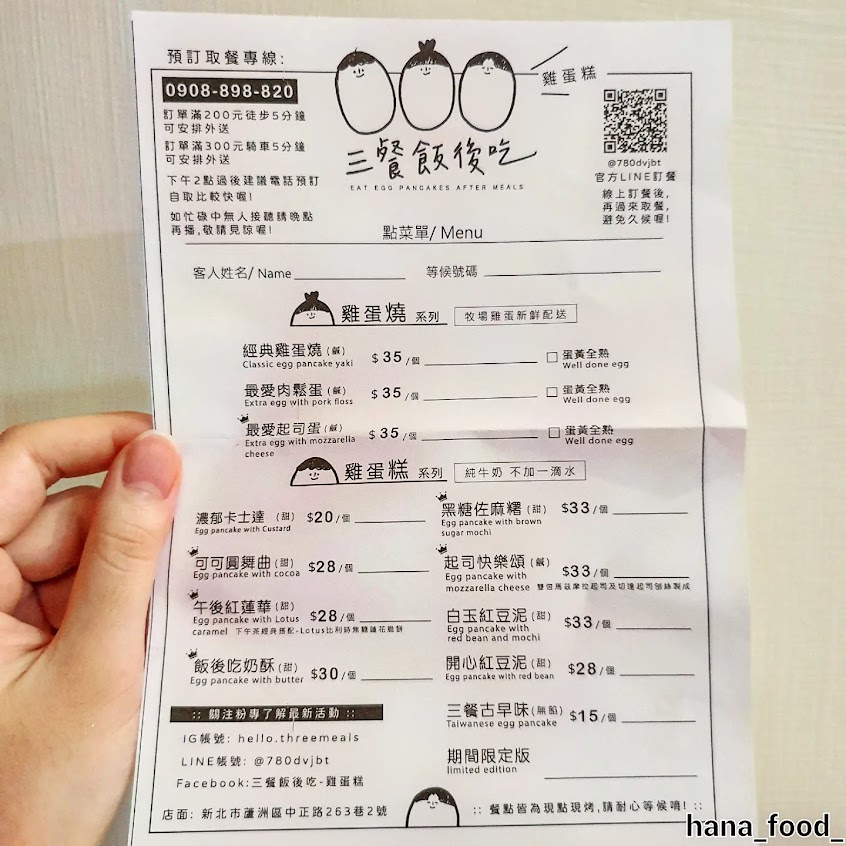 預訂取餐專線:
0908-898-820
訂單滿200元徒步5分鐘
可安排外送
訂單滿300元騎車5分鐘
可安排外送
下午2點過後建議電話預訂
自取比較快喔!
如忙碌中無人接聽請晚點
再播,敬請見諒喔!
三餐飯後吃
EAT EGG PANCAKES AFTER MEALS
雞蛋糕
@780dvjbt
官方LINE訂餐
線上訂餐後,
再過來取餐,
避免久候喔!
點菜單/ Menu
客人姓名/ Name
等候號碼
雞蛋燒 系列 牧場雞蛋新鮮配送
經典雞蛋燒(鹹) $35/個 蛋黃全熟
Classic egg pancake yaki Well done egg
最愛肉鬆蛋(鹹) $35/個 蛋黃全熟
Extra egg with pork floss Well done egg
最愛起司蛋(鹹) $35/個 蛋黃全熟
Extra egg with mozzarella Well done egg
cheese
雞蛋糕 系列 純牛奶 不加一滴水
濃郁卡士達 (甜) $20/個
Egg pancake with Custard
可可圓舞曲(甜) $28/個
Egg pancake with cocoa
午後紅蓮華(甜) $28/個
Egg pancake with Lotus
caramel 下午茶經典搭配-Lotus比利時焦糖蓮花脆餅
飯後吃奶酥(甜) $30/個
Egg pancake with butter
黑糖佐麻糬(甜) $33/個
Egg pancake with brown
sugar mochi
起司快樂頌(鹹) $33/個
Egg pancake with
mozzarella cheese 雙倍馬茲摩拉起司及切達起司刨絲製成
白玉紅豆泥(甜) $33/個
Egg pancake with
red bean and mochi
開心紅豆泥(甜) $28/個
Egg pancake with red bean
三餐古早味(無餡) $15/個
Taiwanese egg pancake
期間限定版
limited edition
:: 關注粉專了解最新活動 ::
IG帳號: hello.threemeals
LINE帳號: @780dvjbt
Facebook:三餐飯後吃-雞蛋糕
店面: 新北市蘆洲區中正路263巷2號
:: 餐點皆為現點現烤,請耐心等候唷! ::
hana_food_